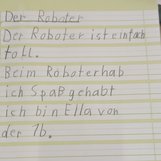 Der Roboter
Der Roboter ist einfach
toll.
Beim Roboter hab
ich Spaß gehabt
ich bin Ella von
der 1b.